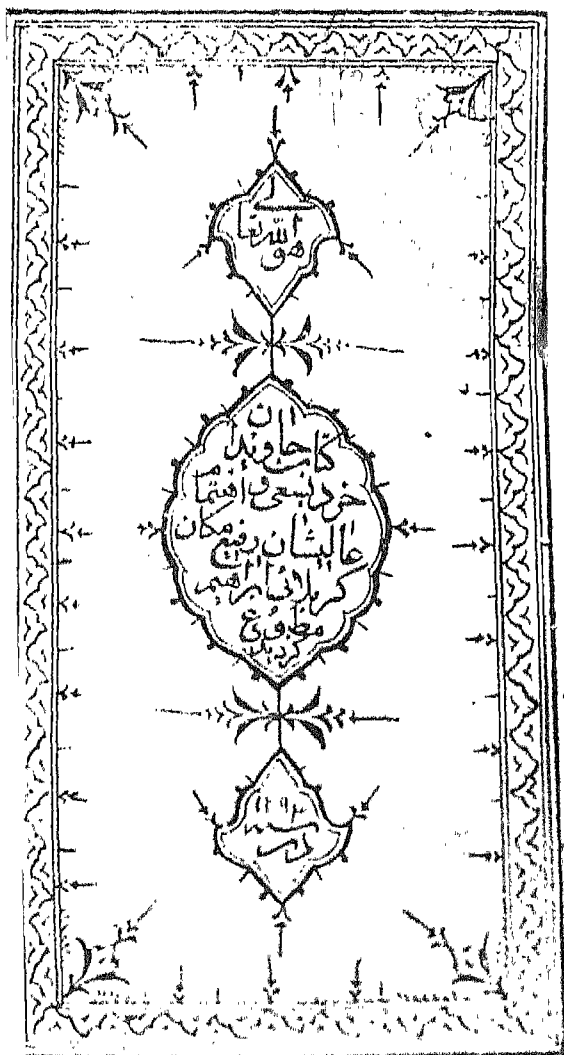 هو الله تعالی
کتاب جاویدان
خرد بسعی و اهتمام
عالیشان رفیع مکان
کربلائی ابراهیم
مطبوع
گردید
در سنه
۱۲۹۳